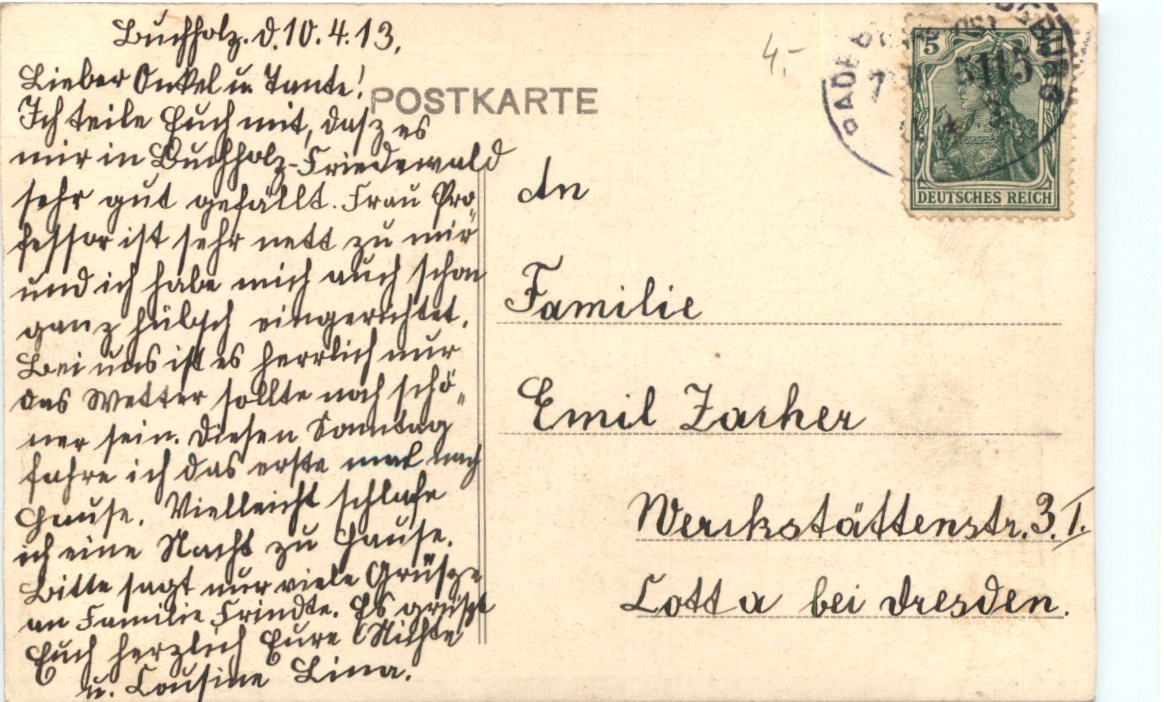 Buchholz. d. 10. 4. 13.
Lieber Onkel u. Tante!
Ich teile Euch mit, dasz es
mir in Buchholz-Friedewald
sehr gut gefällt. Frau Pro-
fessor ist sehr nett zu mir
und ich habe mich auch schon
ganz hübsch eingerichtet.
Bei uns ist es herrlich nur
das Wetter sollte noch schö-
ner sein. Diesen Sonntag
fahre ich das erste mal nach
Hause. Vielleicht schlafe
ich eine Nacht zu Hause.
Bitte sagt nur viele Grüsze
an Familie Frindte. Es grüszt
Euch herzlich Eure Nichte
u. Cousine Lina.
POSTKARTE
4.-
5
5115
DEUTSCHES REICH
An
Familie
Emil Zacher
Werkstättenstr. 3 I.
Cotta bei Dresden.